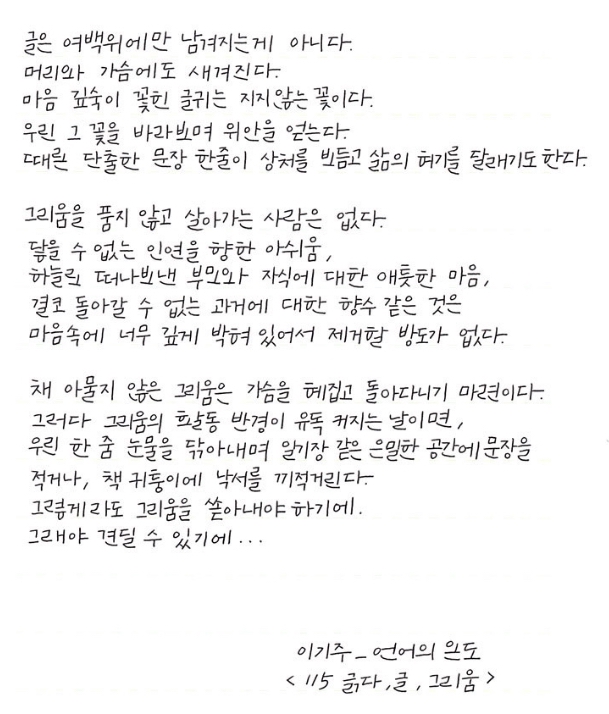 글은 여백위에만 남겨지는게 아니다.
머리와 가슴에도 새겨진다.
마음 깊숙이 꽂힌 글귀는 지지않는 꽃이다.
우린 그 꽃을 바라보며 위안을 얻는다.
때론 단출한 문장 한줄이 상처를 보듬고 삶의 허기를 달래기도 한다.
그리움을 품지 않고 살아가는 사람은 없다.
닿을 수 없는 인연을 향한 아쉬움,
하늘로 떠나보낸 부모와 자식에 대한 애틋한 마음,
결코 돌아갈 수 없는 과거에 대한 향수 같은 것은
마음속에 너무 깊게 박혀 있어서 제거할 방도가 없다.
채 아물지 않은 그리움은 가슴을 헤집고 돌아다니기 마련이다.
그러다 그리움의 활동 반경이 유독 커지는 날이면,
우린 한 줌 눈물을 닦아내며 일기장 같은 은밀한 공간에 문장을
적거나, 책 귀퉁이에 낙서를 끼적거린다.
그렇게라도 그리움을 쏟아내야 하기에.
그래야 견딜 수 있기에...
이기주 - 언어의 온도
< 115 긁다, 글, 그리움 >